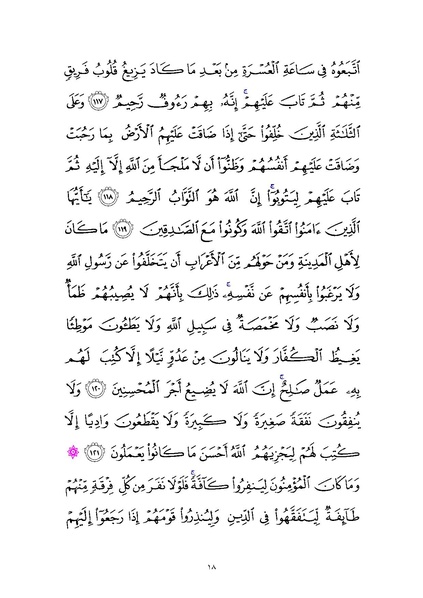 ٱتَّبَعُوهُ فِى سَاعَةِ ٱلْعُسْرَةِ مِنۢ بَعْدِ مَا كَادَ يَزِيغُ قُلُوبُ فَرِيقٍ
مِّنْهُمْ ثُمَّ تَابَ عَلَيْهِمْ ۚ إِنَّهُۥ بِهِمْ رَءُوفٌ رَّحِيمٌ ١١٧ وَعَلَى
ٱلثَّلَٰثَةِ ٱلَّذِينَ خُلِّفُوا۟ حَتَّىٰٓ إِذَا ضَاقَتْ عَلَيْهِمُ ٱلْأَرْضُ بِمَا رَحُبَتْ
وَضَاقَتْ عَلَيْهِمْ أَنفُسُهُمْ وَظَنُّوٓا۟ أَن لَّا مَلْجَأَ مِنَ ٱللَّهِ إِلَّآ إِلَيْهِ ثُمَّ
تَابَ عَلَيْهِمْ لِيَتُوبُوٓا۟ ۚ إِنَّ ٱللَّهَ هُوَ ٱلتَّوَّابُ ٱلرَّحِيمُ ١١٨ يَٰٓأَيُّهَا
ٱلَّذِينَ ءَامَنُوا۟ ٱتَّقُوا۟ ٱللَّهَ وَكُونُوا۟ مَعَ ٱلصَّٰدِقِينَ ١١٩ مَا كَانَ
لِأَهْلِ ٱلْمَدِينَةِ وَمَنْ حَوْلَهُم مِّنَ ٱلْأَعْرَابِ أَن يَتَخَلَّفُوا۟ عَن رَّسُولِ ٱللَّهِ
وَلَا يَرْغَبُوا۟ بِأَنفُسِهِمْ عَن نَّفْسِهِۦ ۚ ذَٰلِكَ بِأَنَّهُمْ لَا يُصِيبُهُمْ ظَمَأٌ
وَلَا نَصَبٌ وَلَا مَخْمَصَةٌ فِى سَبِيلِ ٱللَّهِ وَلَا يَطَـُٔونَ مَوْطِئًا
يَغِيظُ ٱلْكُفَّارَ وَلَا يَنَالُونَ مِنْ عَدُوٍّ نَّيْلًا إِلَّا كُتِبَ لَهُم
بِهِۦ عَمَلٌ صَٰلِحٌ ۚ إِنَّ ٱللَّهَ لَا يُضِيعُ أَجْرَ ٱلْمُحْسِنِينَ ١٢٠ وَلَا
يُنفِقُونَ نَفَقَةً صَغِيرَةً وَلَا كَبِيرَةً وَلَا يَقْطَعُونَ وَادِيًا إِلَّا
كُتِبَ لَهُمْ لِيَجْزِيَهُمُ ٱللَّهُ أَحْسَنَ مَا كَانُوا۟ يَعْمَلُونَ ١٢١ ۞
وَمَا كَانَ ٱلْمُؤْمِنُونَ لِيَنفِرُوا۟ كَآفَّةً ۚ فَلَوْلَا نَفَرَ مِن كُلِّ فِرْقَةٍ مِّنْهُمْ
طَآئِفَةٌ لِّيَتَفَقَّهُوا۟ فِى ٱلدِّينِ وَلِيُنذِرُوا۟ قَوْمَهُمْ إِذَا رَجَعُوٓا۟ إِلَيْهِمْ
١٨